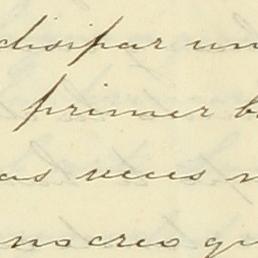 disipar un
primer b
as veces n
no creo qu